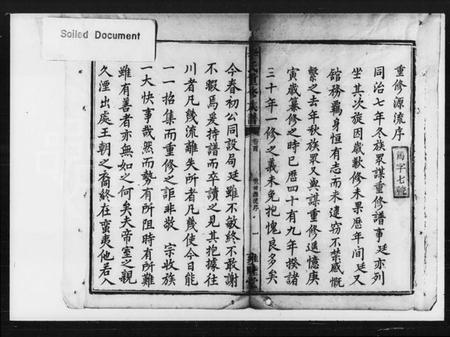 Soiled Document
重修源流序
馬字七號
同治七年冬族眾謀重修譜事廷亦列
坐其次旋因歲歉修未果歷年間廷又
館務羈身恒有志而未逮竊不禁感慨
繫之去年秋族眾又與謀重修追憶庚
寅歲纂修之時已歷四十有九年揆諸
三十年一修之義未免抱愧良多矣
今春初公同設局廷雖不敏終不敢謝
不敏爰持譜而卒讀之見其抱據往
川者凡幾流離失所者凡幾使今日能
一一招集而重修之詎非敦宗收族
一大快事哉然而勢有所阻時有所難
雖有善者亦無如之何矣夫帝室之親
久湮出處王朝之裔終在蠻夷他若入